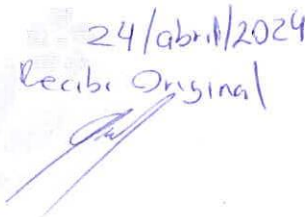 24/abril/2024
Recibi Original